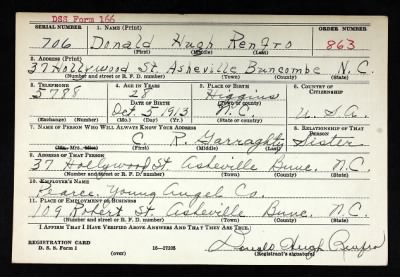 DSS Form 166
SERIAL NUMBER 1. NAME (Print) ORDER NUMBER
706 Donald Hugh Renfro 863
(First) (Middle) (Last)
2. ADDRESS (Print)
37 Hollywood St. Asheville Buncombe N.C.
(Number and street or R. F. D. number) (Town) (County) (State)
3. TELEPHONE 4. AGE IN YEARS 5. PLACE OF BIRTH 6. COUNTRY OF CITIZENSHIP
5788 27 Higgins
DATE OF BIRTH (Town or county)
Oct. 5 1913 N.C. U.S.A.
(Exchange) (Number) (Mo.) (Day) (Yr.) (State or country)
7. NAME OF PERSON WHO WILL ALWAYS KNOW YOUR ADDRESS 8. RELATIONSHIP OF THAT PERSON
C. R. Garraghty Sister
(Mr., Mrs., Miss) (First) (Middle) (Last)
9. ADDRESS OF THAT PERSON
37 Hollywood St Asheville Bunc. N.C.
(Number and street or R. F. D. number) (Town) (County) (State)
10. EMPLOYER'S NAME
Pearce Young Angel Co.
11. PLACE OF EMPLOYMENT OR BUSINESS
109 Robert St. Asheville Bunc. N.C.
(Number and street or R. F. D. number) (Town) (County) (State)
I AFFIRM THAT I HAVE VERIFIED ABOVE ANSWERS AND THAT THEY ARE TRUE.
REGISTRATION CARD
D. S. S. Form 1 16—17105 Donald Hugh Renfro
(over) (Registrant's signature)